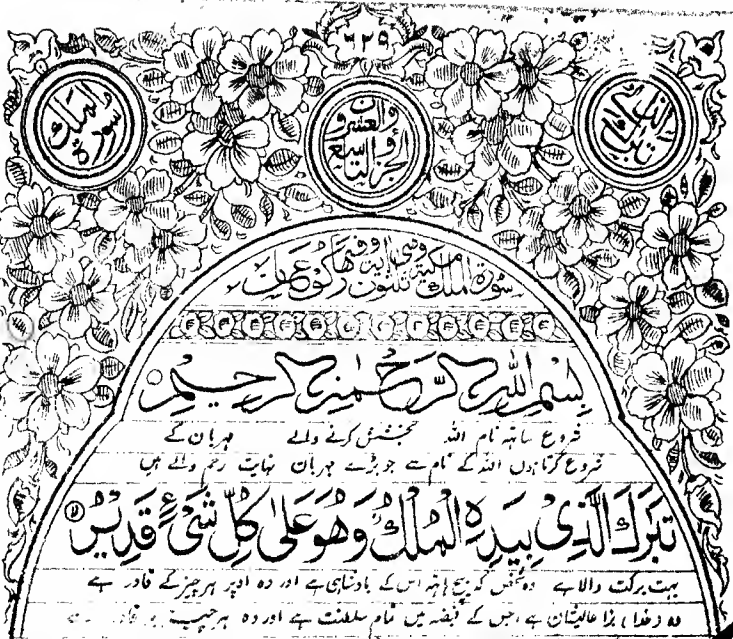 ٦٢٩
سورة الملك
الجزء التاسع والعشرون
تبرك الذى
سورة الملك مكية وهى ثلثون اية وفيها ركوعان
بِسْمِ اللهِ الرَّحْمٰنِ الرَّحِيْمِ
شروع ساتھ نام اللہ بخشش کرنے والے مہربان کے
شروع کرتا ہوں اللہ کے نام سے جو بڑے مہربان نہایت رحم والے ہیں
تَبٰرَكَ الَّذِىْ بِيَدِهِ الْمُلْكُ وَهُوَ عَلٰى كُلِّ شَىْءٍ قَدِيْرُ
بہت برکت والا ہے وہ شخص کہ بیچ ہاتھ اس کے بادشاہی ہے اور وہ اوپر ہر چیز کے قادر ہے
وہ (خدا) بڑا عالیشان ہے جس کے قبضہ میں تمام سلطنت ہے اور وہ ہر چیز پر قادر ہے